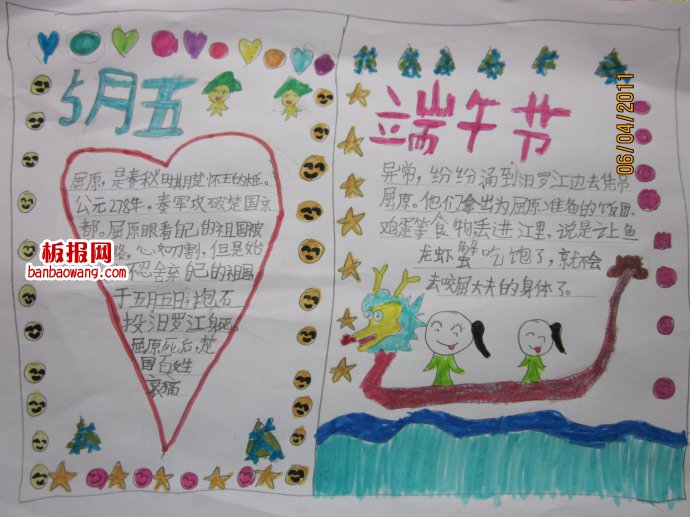 5月五
屈原,是春秋时期楚怀王的大臣。
公元278年,秦军攻破楚国京
都。屈原眼看自己的祖国被
略,心如刀割,但是始
不忍舍弃自己的祖国,
于五月五日,抱石
投汨罗江身死。
屈原死后,楚
国百姓
哀痛
端午节
异常,纷纷涌到汨罗江边去凭吊
屈原。他们拿出为屈原准备的饭团、
鸡蛋等食物丢进江里,说是让鱼
龙虾蟹吃饱了,就不会
去咬屈大夫的身体了。
板报网
banbaowang.com
06/04/2011